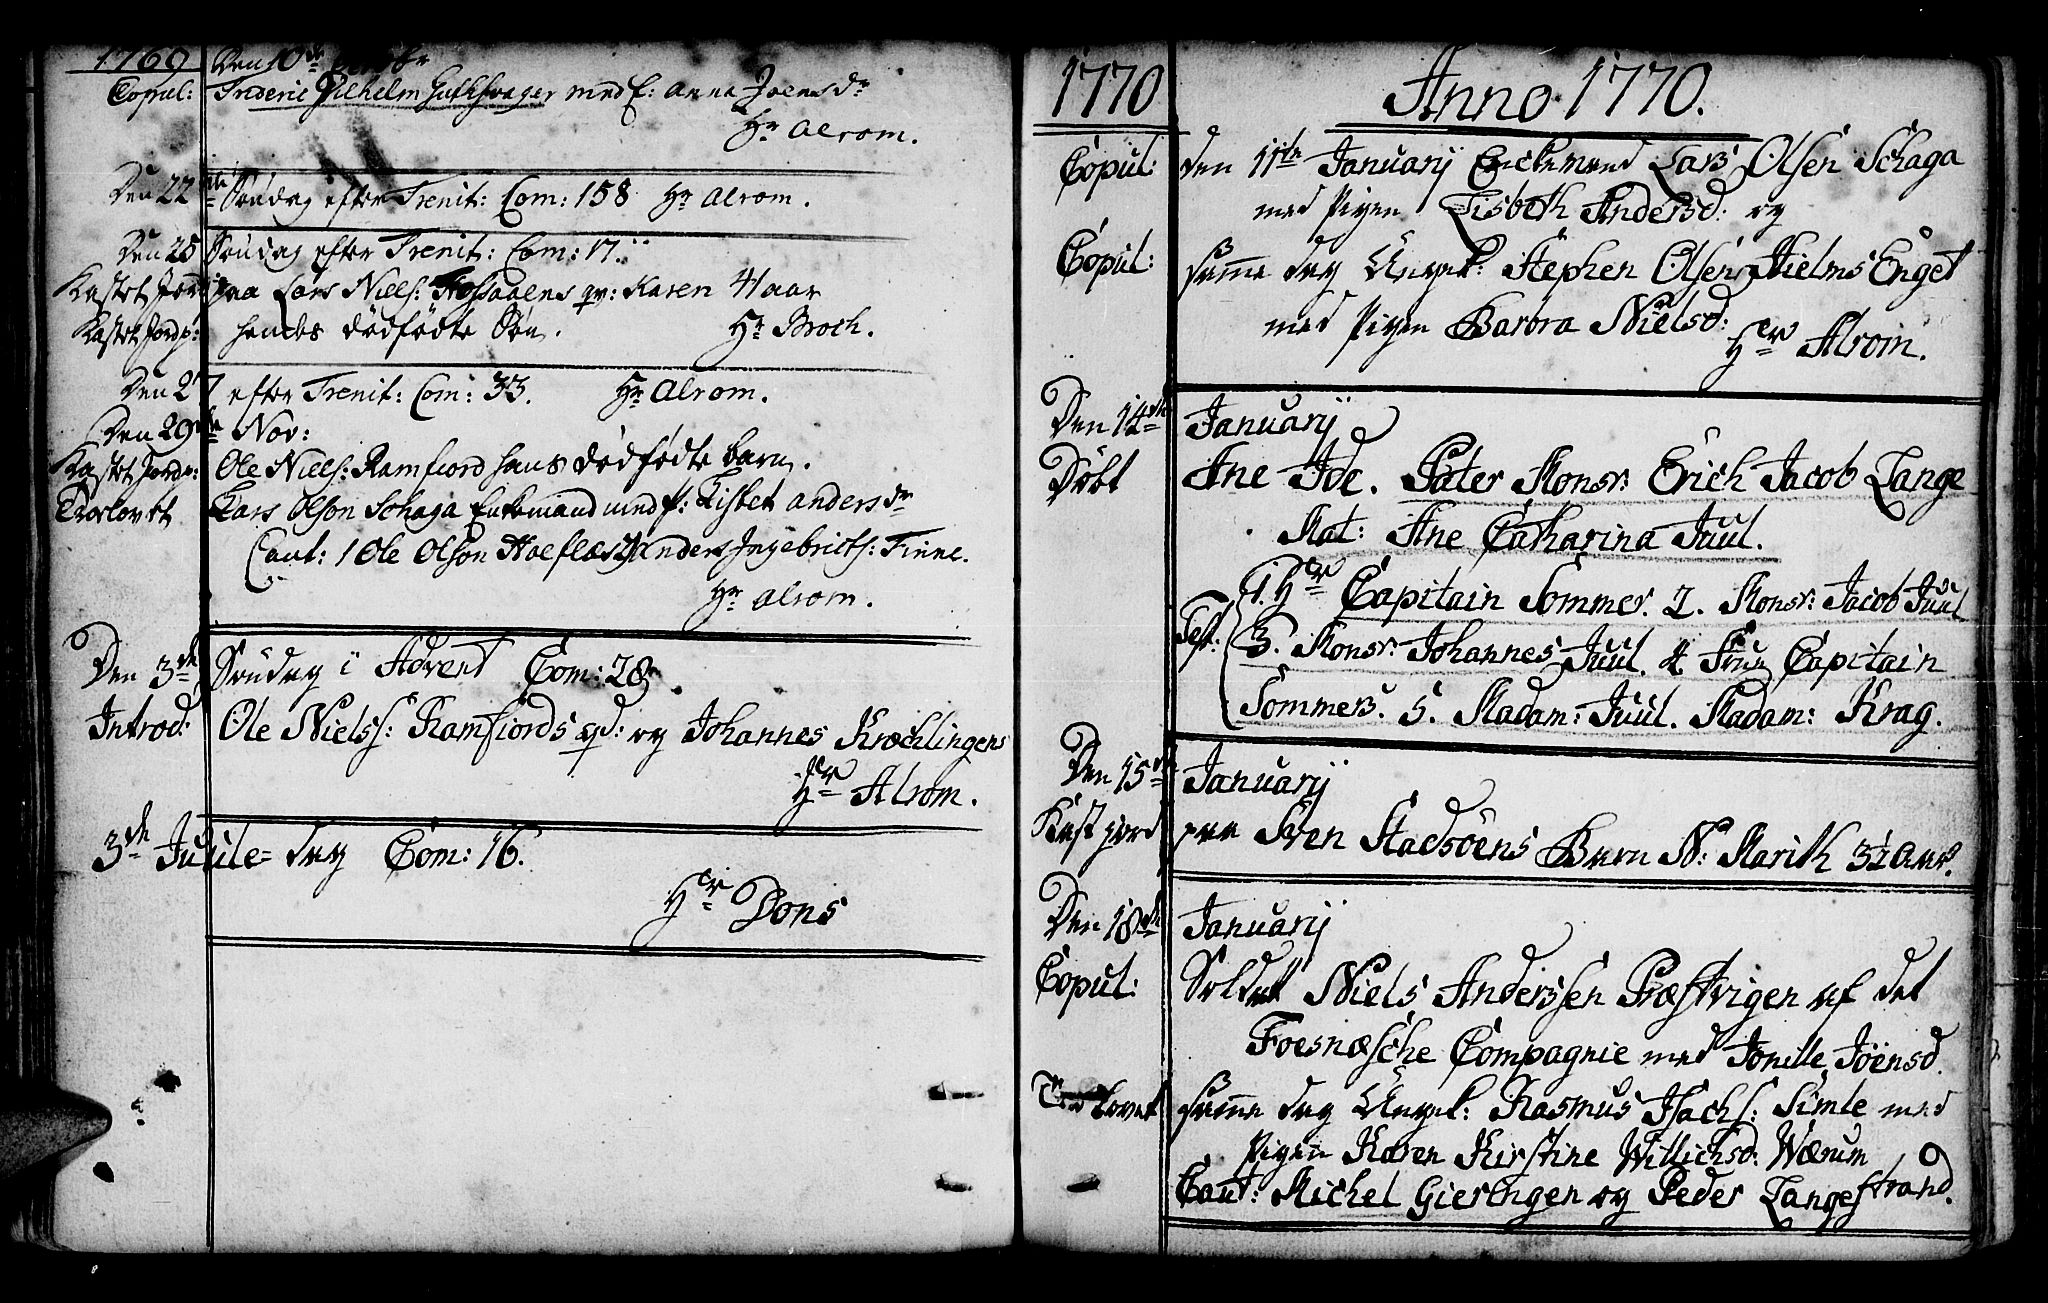 1769
Den 10de Octbr
Copul: Frideric Vilhelm Guthsvager med E: Anna Joensdr
Hr Alrom.
Den 22de Søndag efter Trenit: Com: 158 Hr Alrom.
Den 25 Søndag efter Trenit: Com: 17.
Kastet Jord paa Lars Niels: qv: Karen 41 aar
Kastet Jord p: hendes dødfødte Søn. Hr Broch.
Den 27 efter Trenit: Com: 33. Hr Alrom.
Den 29de Nov:
Kastet Jord p: Ole Niels: Ramfiord hans dødfødte barn.
Trolovet Lars Olson Schaga Enkemand med p: Lisbet andersdr
Caut: 1 Ole Olson Hoeflæs 2 Anders Ingebricts: Finne.
Hr Alrom.
Den 3de Søndag i Advent Com: 28
Introd: Ole Nielss: Ramfiords qd: og Johannes Kræchlingens
Hr Alrom.
3de Juule= dag Com: 16.
Hr Dons
1770
Anno 1770.
Copul: den 11te Januarij Enckemand Lars Olsen Schaga
med Pigen Lisbeth Andersd: og
Copul: samme dag Ungk: Stephen Olsen Hielms Enget
med Pigen Barbra Nielsd:
Hr Alrom.
Den 14de Januarij
Døbt Ane Ide. Pater Monsr: Erich Jacob Lange
Mat: Ane Catharina Juul.
Test: 1. Hr Capitain Sommer. 2. Monsr: Jacob Juul
3. Monsr: Johannes Juul. 4 Frue Capitain
Sommers. 5. Madam: Juul. Madam: Krag.
Den 15de Januarij
Kast jord paa Sven Stadsøens Barn N: Marith 3½ Aar.
Den 18de Januarij
Copul: Soldat Niels Anderssen Præstvigen af det
Foesnæsche Compagnie med Jonille Joensd.
Trolovet samme dag Ungk: Rasmus Isachs: Simle med
Pigen Karen Kirstine Willichsd: Wærum
Caut: Michel Gieringen og Peder Langestrand.